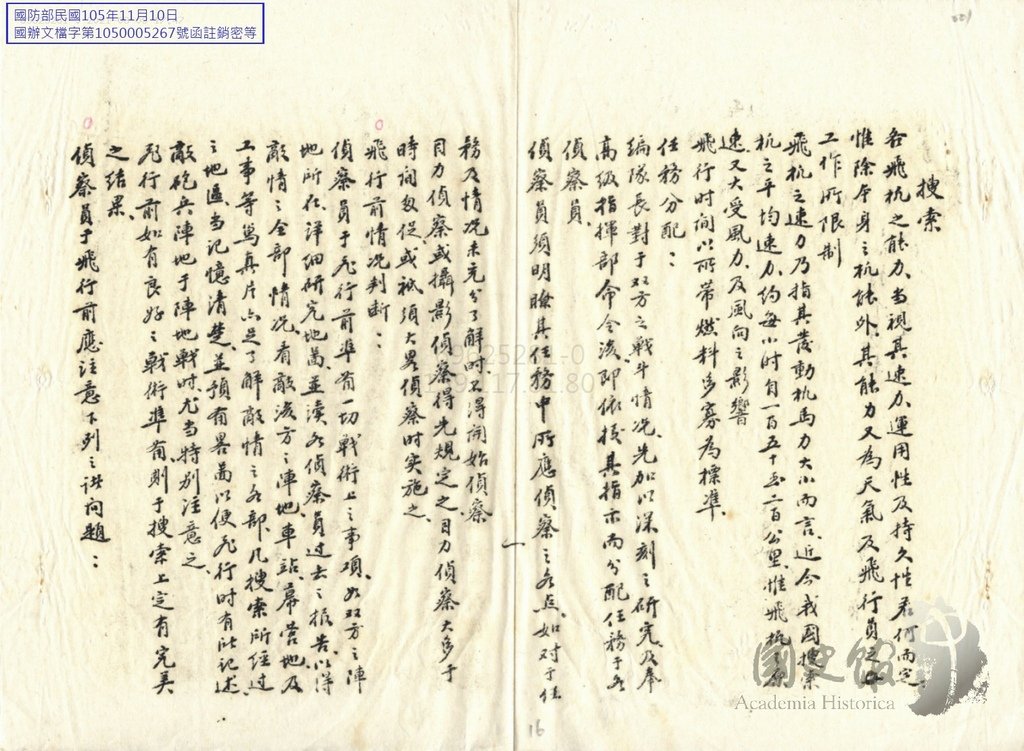 國防部民國105年11月10日
國辦文檔字第1050005267號函註銷密等
搜索
各飛机之能力、当視其速力、運用性及持久性若何而定、
惟除本身之机能外、其能力又為天氣及飛行員之
工作所限制
飛机之速力乃指其發動机馬力大小而言、近今我國搜索
机之平均速力、約每小时自一百五十至二百公里、惟飛机之
速、又大受風力、及風向之影響
飛行时间以所带燃料多寡為標準、
任務分配：
編隊長對于双方之战斗情况、先加以深刻之研究、及奉
高級指揮部命令後、即依據其指示而分配任務于各
偵察員、
偵察員須明瞭其任務中所應偵察之各点、如对于任
一
務及情况未充分了解时、不得開始偵察
目力偵察或攝影偵察得先規定之目力偵察大多于
時间匆促、或祇須大畧偵察时实施之、
飛行前情况判断：
偵察員于飛行前準俻一切戰術上之事項、如双方之陣
地所在、詳细研究地啚、並瀆各偵察員过去之报告、以得
敵情之全部情况、看敵後方之陣地車站、幕营地及
工事等寫真片、亦足了解敵情之各部、凡搜索所經过
之地區、当记憶清楚、並預俻畧啚以便飛行时有所记述
敵砲兵陣地于陣地戰时、尤当特别注意之、
飛行前如有良好之戰術準俻、則于搜索上定有完美
之结果、
偵察員于飛行前應注意下列之諸问題：
16
國史館
Academia Historica